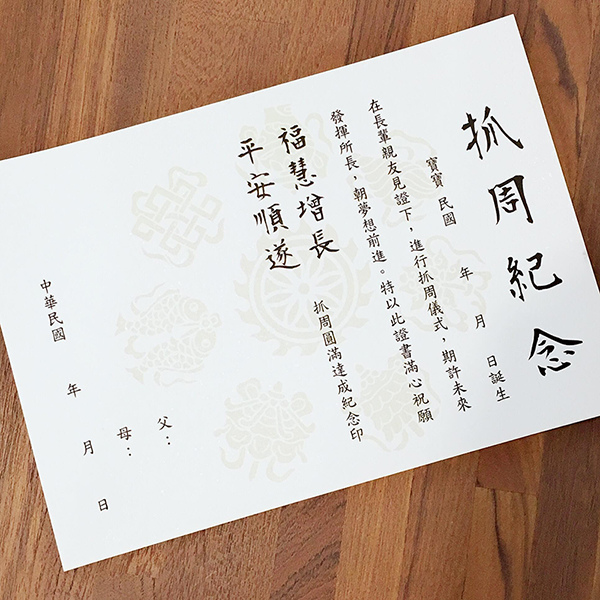 抓周紀念
寶寶 民國 年 月 日誕生
在長輩親友見證下，進行抓周儀式，期許未來
發揮所長，朝夢想前進。特以此證書滿心祝願
福慧增長
平安順遂
抓周圓滿達成紀念印
父：
母：
中華民國 年 月 日